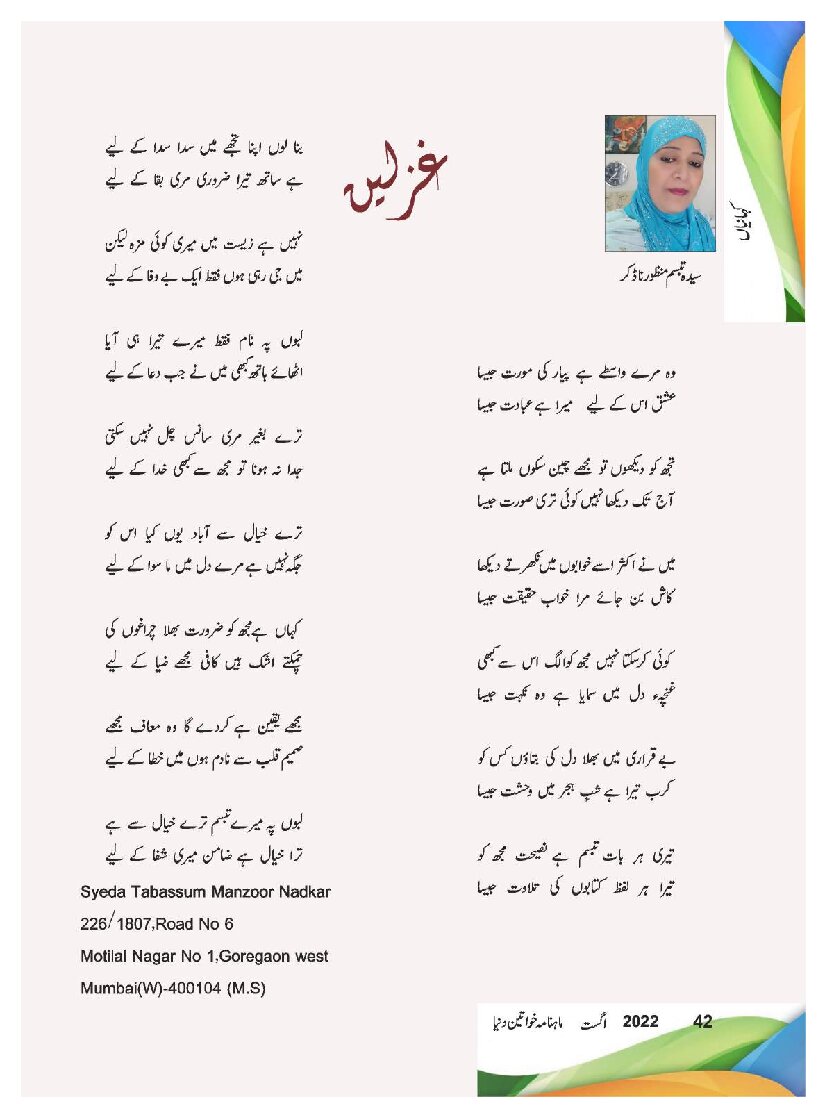 کہانیاں
غزلیں
سیدہ تبسم منظور ناڈکر
وہ مرے واسطے ہے پیار کی مورت جیسا
عشق اس کے لیے میرا ہے عبادت جیسا
تجھ کو دیکھوں تو مجھے چین سکوں ملتا ہے
آج تک دیکھا نہیں کوئی تری صورت جیسا
میں نے اکثر اسے خوابوں میں نکھرتے دیکھا
کاش بن جائے مرا خواب حقیقت جیسا
کوئی کرسکتا نہیں مجھ کو الگ اس سے کبھی
غنچہء دل میں سمایا ہے وہ نکہت جیسا
بے قراری میں بھلا دل کی بتاؤں کس کو
کرب تیرا ہے شبِ ہجر میں وحشت جیسا
تیری ہر بات تبسم ہے نصیحت مجھ کو
تیرا ہر لفظ کتابوں کی تلاوت جیسا
بنا لوں اپنا تجھے میں سدا سدا کے لیے
ہے ساتھ تیرا ضروری مری بقا کے لیے
نہیں ہے زیست میں میری کوئی مزہ لیکن
میں جی رہی ہوں فقط ایک بے وفا کے لیے
لبوں پہ نام فقط میرے تیرا ہی آیا
اٹھائے ہاتھ کبھی میں نے جب دعا کے لیے
ترے بغیر مری سانس چل نہیں سکتی
جدا نہ ہونا تو مجھ سے کبھی خدا کے لیے
ترے خیال سے آباد یوں کیا اس کو
جگہ نہیں ہے مرے دل میں ما سوا کے لیے
کہاں ہے مجھ کو ضرورت بھلا چراغوں کی
چمکتے اشک ہیں کافی مجھے ضیا کے لیے
مجھے یقین ہے کردے گا وہ معاف مجھے
صمیم قلب سے نادم ہوں میں خطا کے لیے
لبوں پہ میرے تبسم ترے خیال سے ہے
ترا خیال ہے ضامن میری شفا کے لیے
Syeda Tabassum Manzoor Nadkar
226/1807,Road No 6
Motilal Nagar No 1,Goregaon west
Mumbai(W)-400104 (M.S)
ماہنامہ خواتین دنیا اگست 2022 42